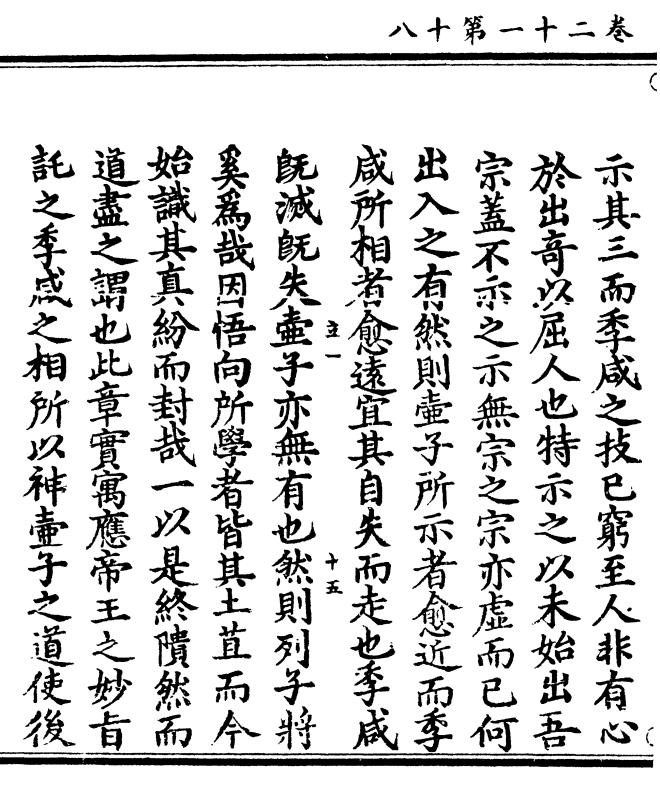 卷二十一第十八
示其三而季咸之技已窮至人非有心
於出奇以屈人也特示之以未始出吾
宗蓋不示之示無宗之宗亦虛而已何
出入之有然則壷子所示者愈近而季
咸所相者愈遠宜其自失而走也季咸
旣滅旣失壷子亦無有也然則列子將
立一
十五
奚爲哉因悟向所學者皆其土苴而今
始識其真紛而封哉一以是終隤然而
道盡之謂也此章實寓應帝王之妙旨
託之季咸之相所以神壷子之道使後